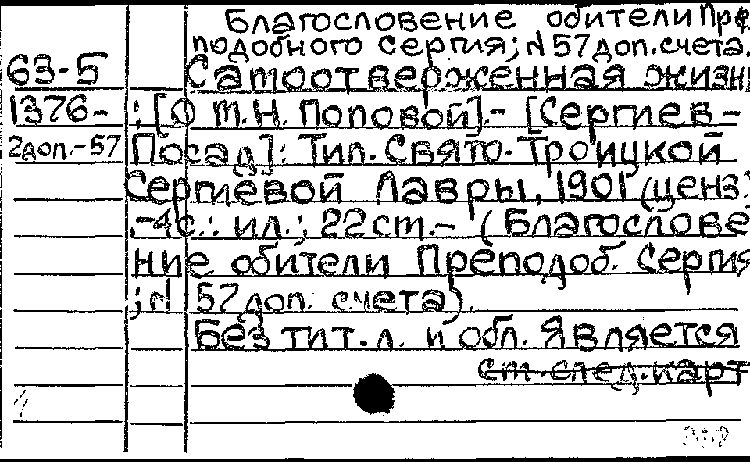 Благословение обители Пре
подобного Сергия; N 57 доп. счета.
63-5 Самоотверженная жизнь
1376- : [О М.Н. Поповой].- [Сергиев-
2доп.-57 Посад]: Тип. Свято-Троицкой
Сергиевой Лавры, 1901 (ценз)
.-4с.: ил.; 22 ст.- (Благослове
ние обители Преподоб. Сергия
; N 57 доп. счета).
Без тит. л. и обл. Является
ст. след. карт